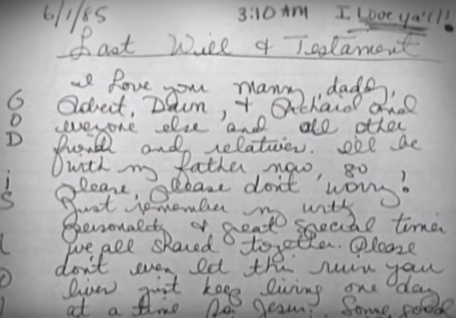 6/1/85 3:10 AM I Love ya'll!
Last Will & Testament
I Love you mamy, daddy,
Robert, Dawn, & Richard and
everyone else and all other
friends and relatives. I'll be
with my father now, so
Please, Please don't worry!
Just remember my witty
personality & great special times
we all shared together. Please
don't ever let this ruin your
lives just keep living one day
at a time for Jesus. Some good
G
O
D
i
S
L
O